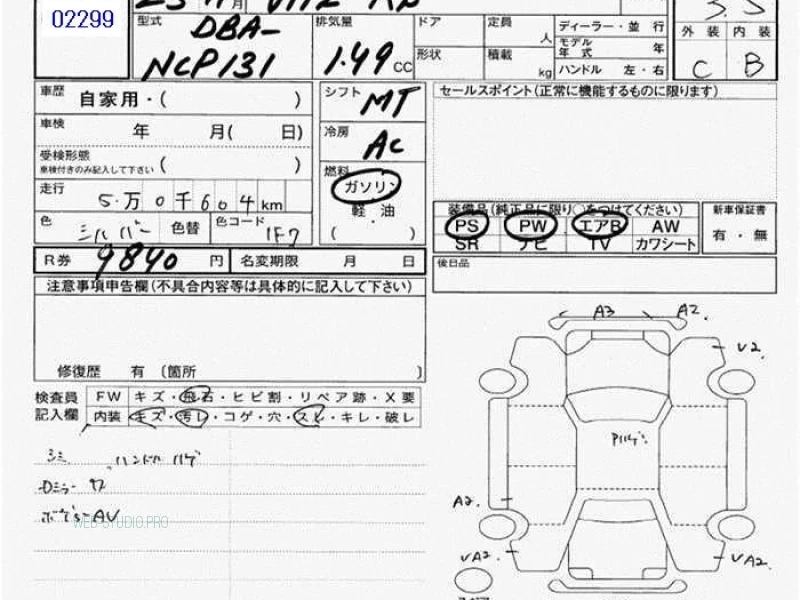 02299
型式 DBA-
NCP131
排気量 1.49 CC
ドア
形状
定員 人
積載 kg
ディーラー・並 行
モデル年式 年
ハンドル 左・右
3.5
外 装 内 装
C B
車歴 自家用・( )
車検 年 月( 日)
受検形態
車検付きのみ記入して下さい ( )
走行 5万0千604km
色 シルバー 色替 色コード 1F7
シフト MT
冷房 AC
燃料 ガソリン
軽 ・ 油
( )
セールスポイント(正常に機能するものに限ります)
装備品(純正品に限り○をつけてください)
PS PW エアB AW
SR ナビ TV カワシート
新車保証書
有 ・ 無
後日品
R券 9840 円 名変期限 月 日
注意事項申告欄(不具合内容等は具体的に記入して下さい)
修復歴 有 (箇所 )
検査員 記入欄
FW キズ・飛石・ヒビ割・リペア跡・X要
内装 キズ・汚レ・コゲ・穴・スレ・キレ・破レ
シミ ハンドル ハゲ
ボデーAV
WEB-STUDIO.PRO
A3 A2.
V2.
A2.
VA2. VA2.